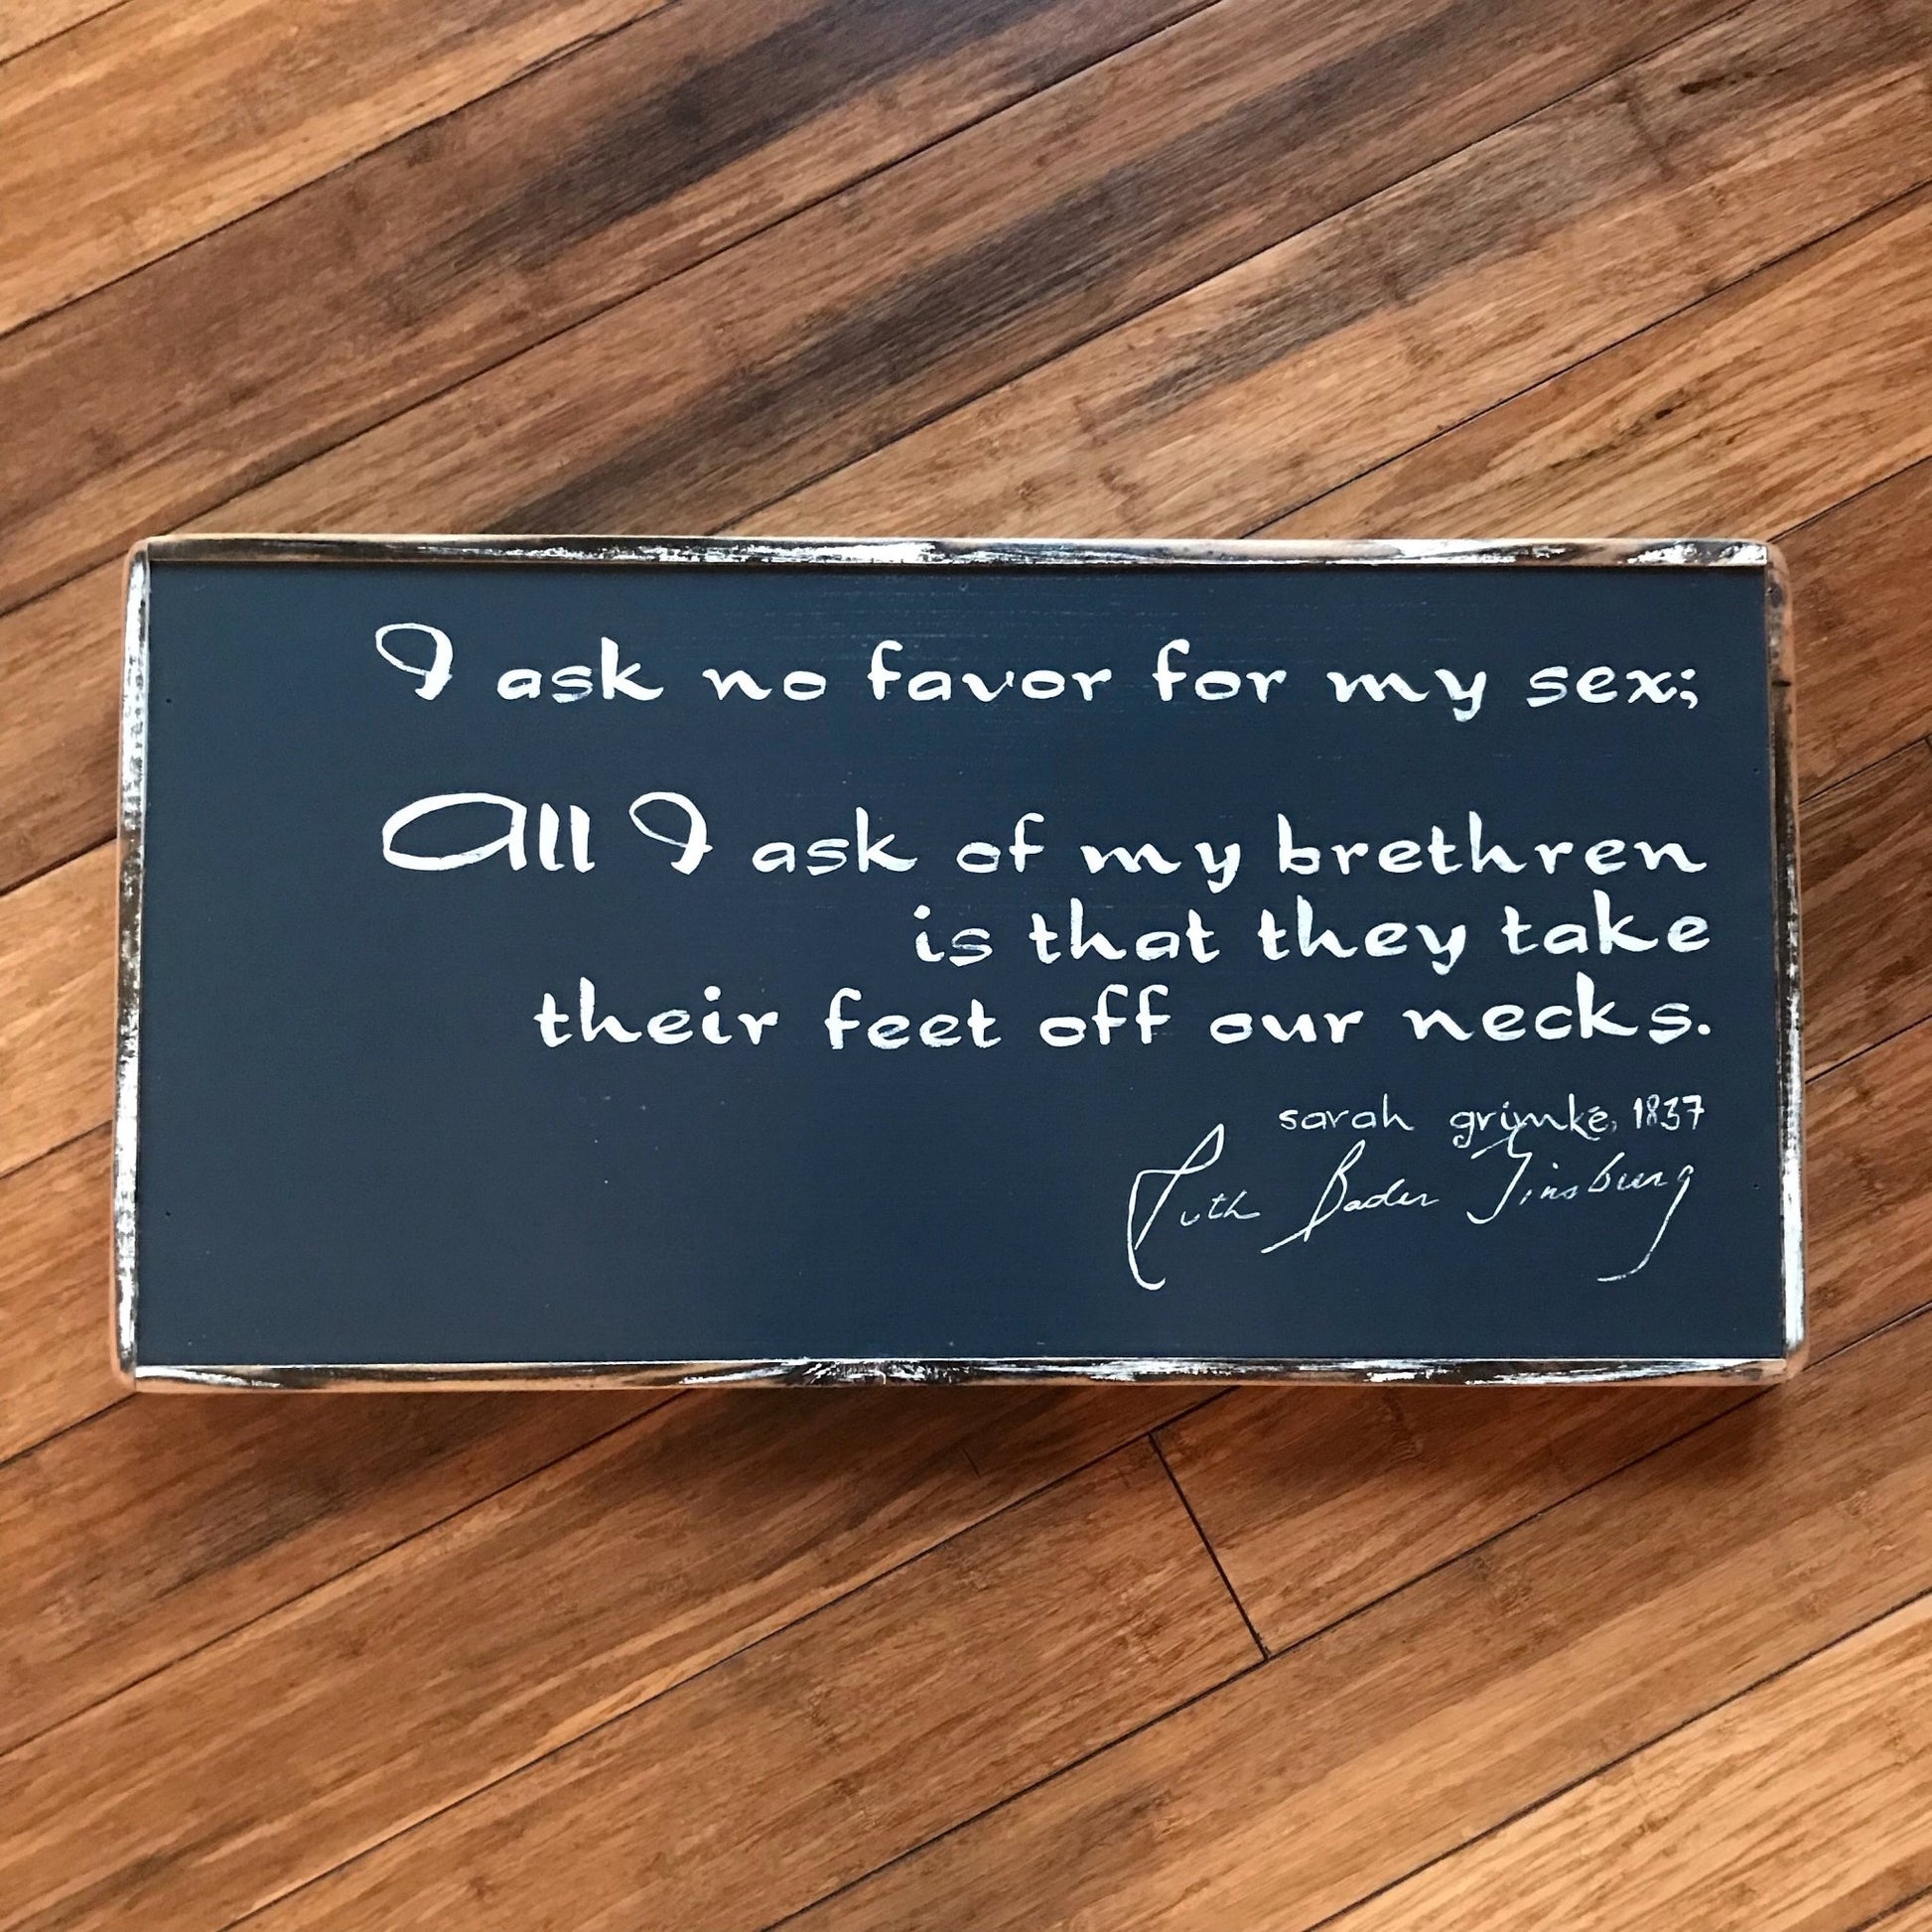 I ask no favor for my sex;
All I ask of my brethren
is that they take
their feet off our necks.
sarah grimke, 1837
Ruth Bader Ginsburg